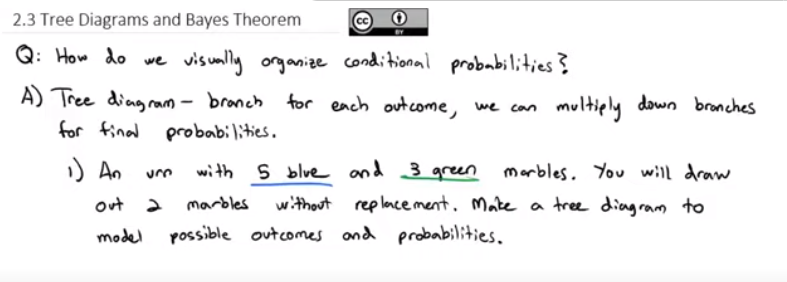 2.3 Tree Diagrams and Bayes Theorem
cc BY
Q: How do we visually organize conditional probabilities?
A) Tree diagram - branch for each outcome, we can multiply down branches
for final probabilities.
1) An urn with 5 blue and 3 green marbles. You will draw
out 2 marbles without replacement. Make a tree diagram to
model possible outcomes and probabilities.